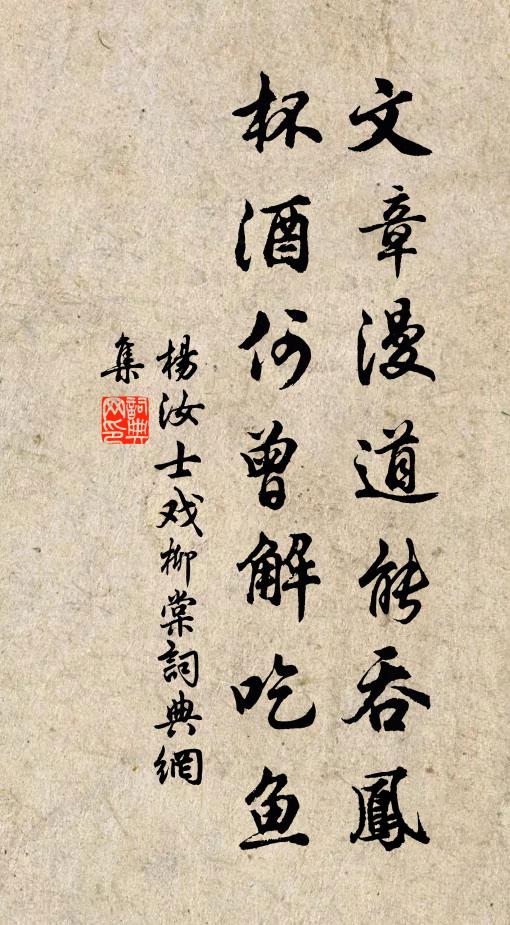 文章漫道能吞鳳
杯酒何曾解吃鱼
楊汝士戏柳棠詞典網
集
詞典
网印